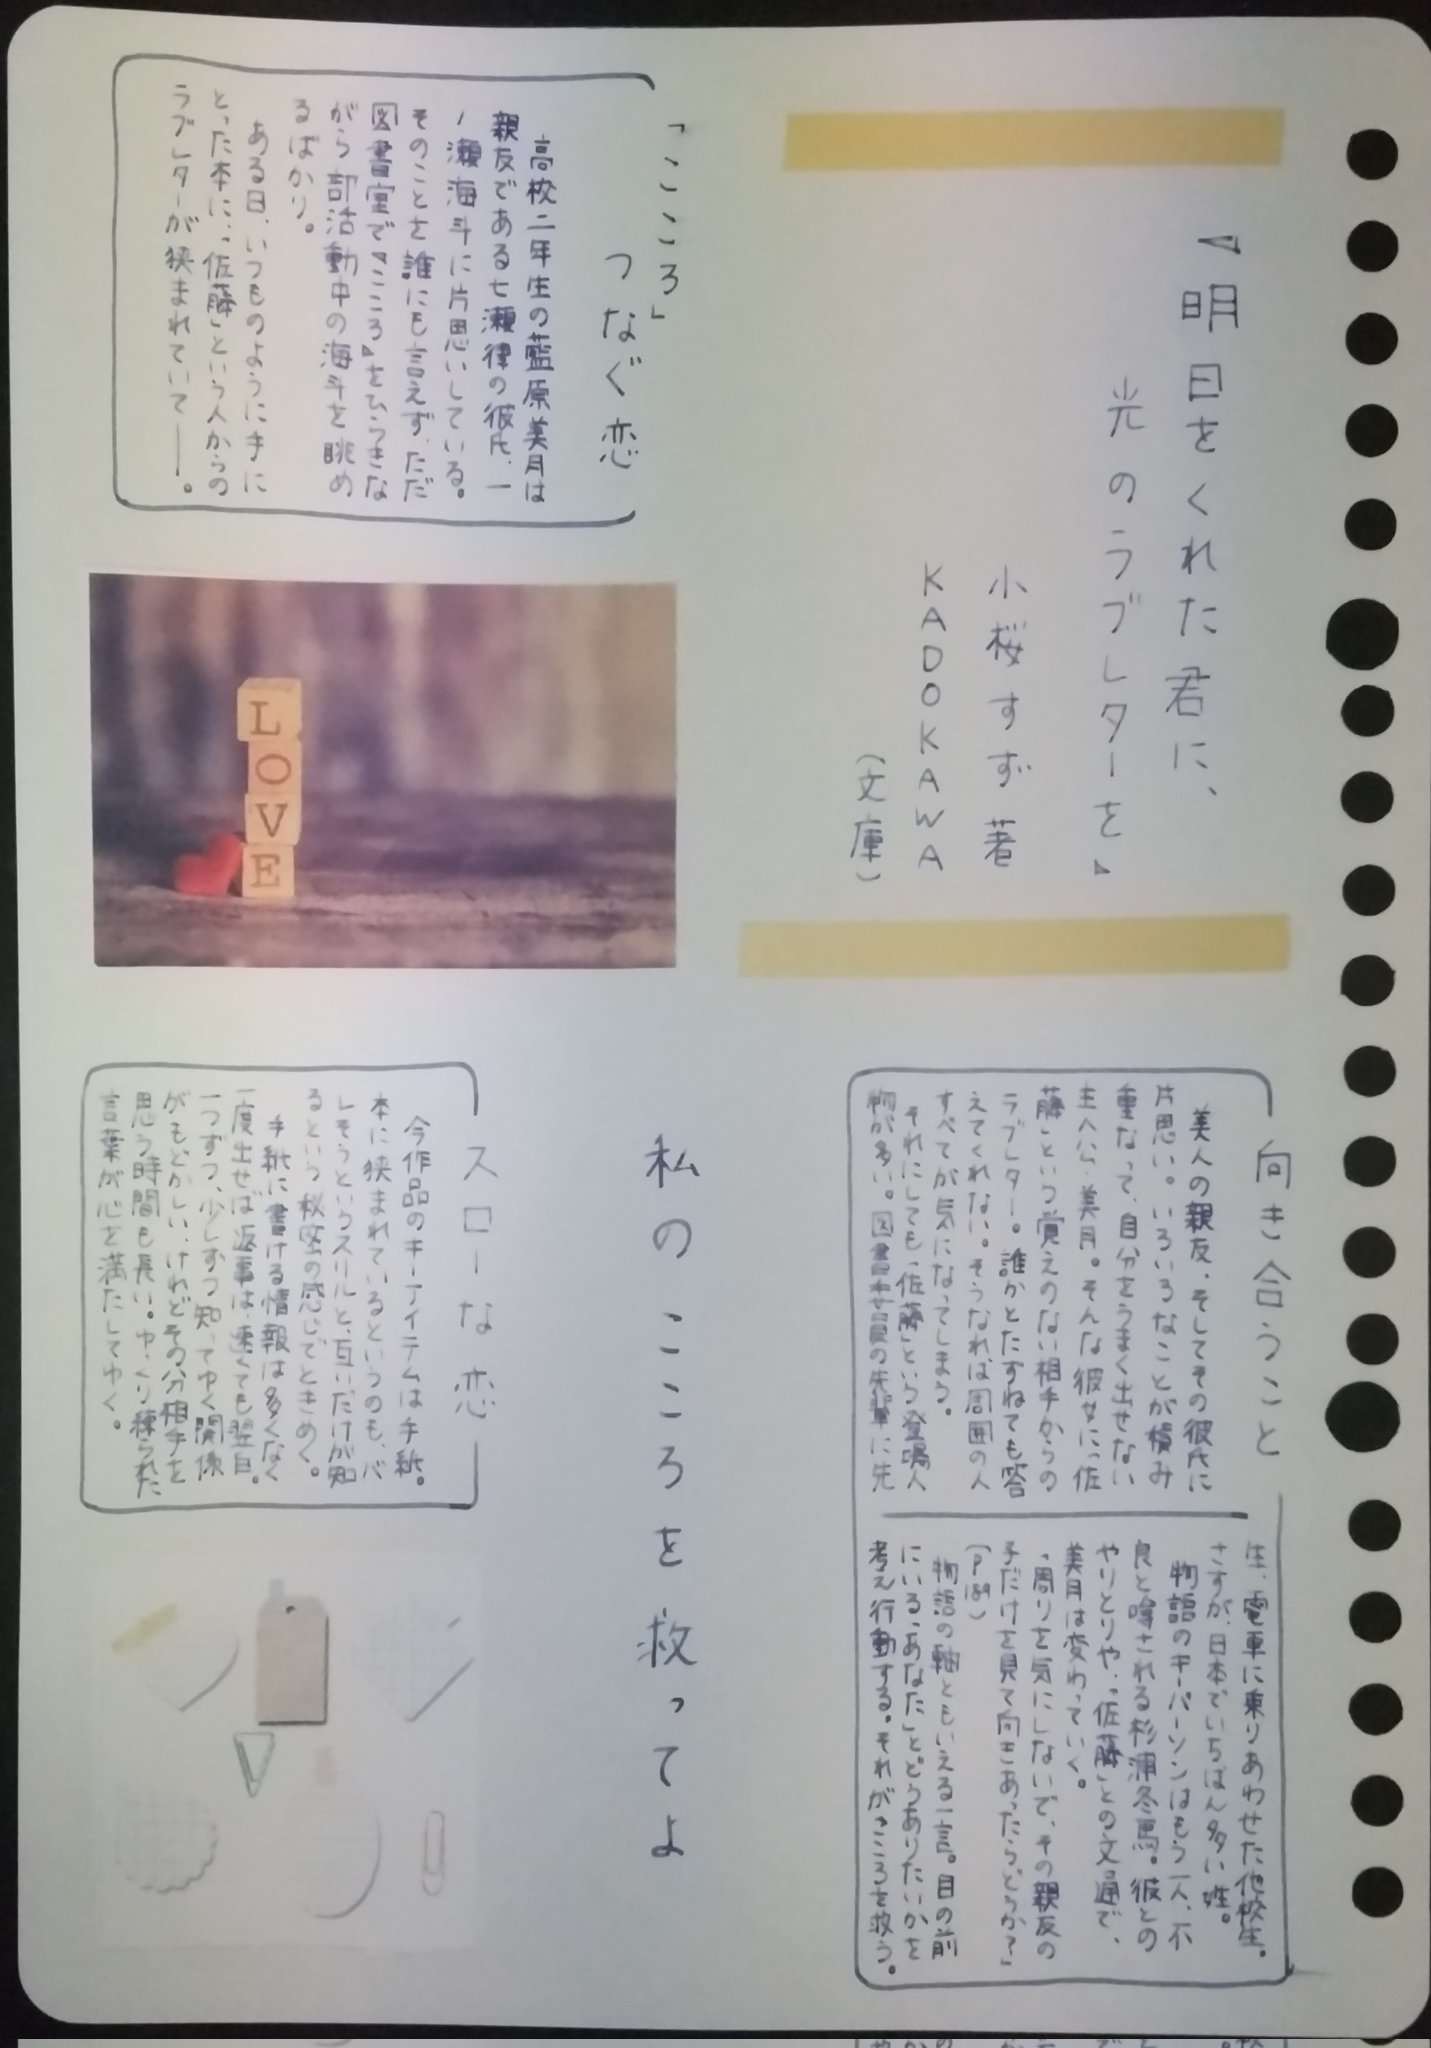 『明日をくれた君に、
光のラブレターを』
小桜すず 著
KADOKAWA
(文庫)
「こころ」
つなぐ恋
高校二年生の藍原美月は
親友である七瀬律の彼氏、一
ノ瀬海斗に片思いしている。
そのことを誰にも言えず、ただ
図書室で『こころ』をひらきな
がら部活動中の海斗を眺め
るばかり。
ある日、いつものように手に
とった本に、「佐藤」という人からの
ラブレターが挟まれていて――。
LOVE
向き合うこと
美人の親友、そしてその彼氏に
片思い。いろいろなことが積み
重なって、自分をうまく出せない
主人公・美月。そんな彼女に、「佐
藤」という覚えのない相手からの
ラブレター。誰かとたずねても答
えてくれない。そうなれば周囲の人
すべてが気になってしまう。
それにしても「佐藤」という登場人
物が多い。図書委員の先輩に先
生、電車に乗りあわせた他校生。
さすが、日本でいちばん多い姓。
物語のキーパーソンはもう一人、不
良と噂される杉浦冬馬。彼との
やりとりや、「佐藤」との文通で、
美月は変わっていく。
「周りを気にしないで、その親友の
子だけを見て向きあったらどうか?」
(P189)
物語の軸ともいえる一言。目の前
にいる「あなた」とどうありたいかを
考え行動する。それがこころを救う。
私のこころを救ってよ
スローな恋
今作品のキーアイテムは手紙。
本に挟まれているというのも、バ
レそうというスリルと、互いだけが知
るという秘密の感じでときめく。
手紙に書ける情報は多くなく
一度出せば返事は、速くても翌日。
一つずつ、少しずつ知ってゆく関係
がもどかしい、けれどその分相手を
思う時間も長い。ゆっくり練られた
言葉が心を満たしてゆく。